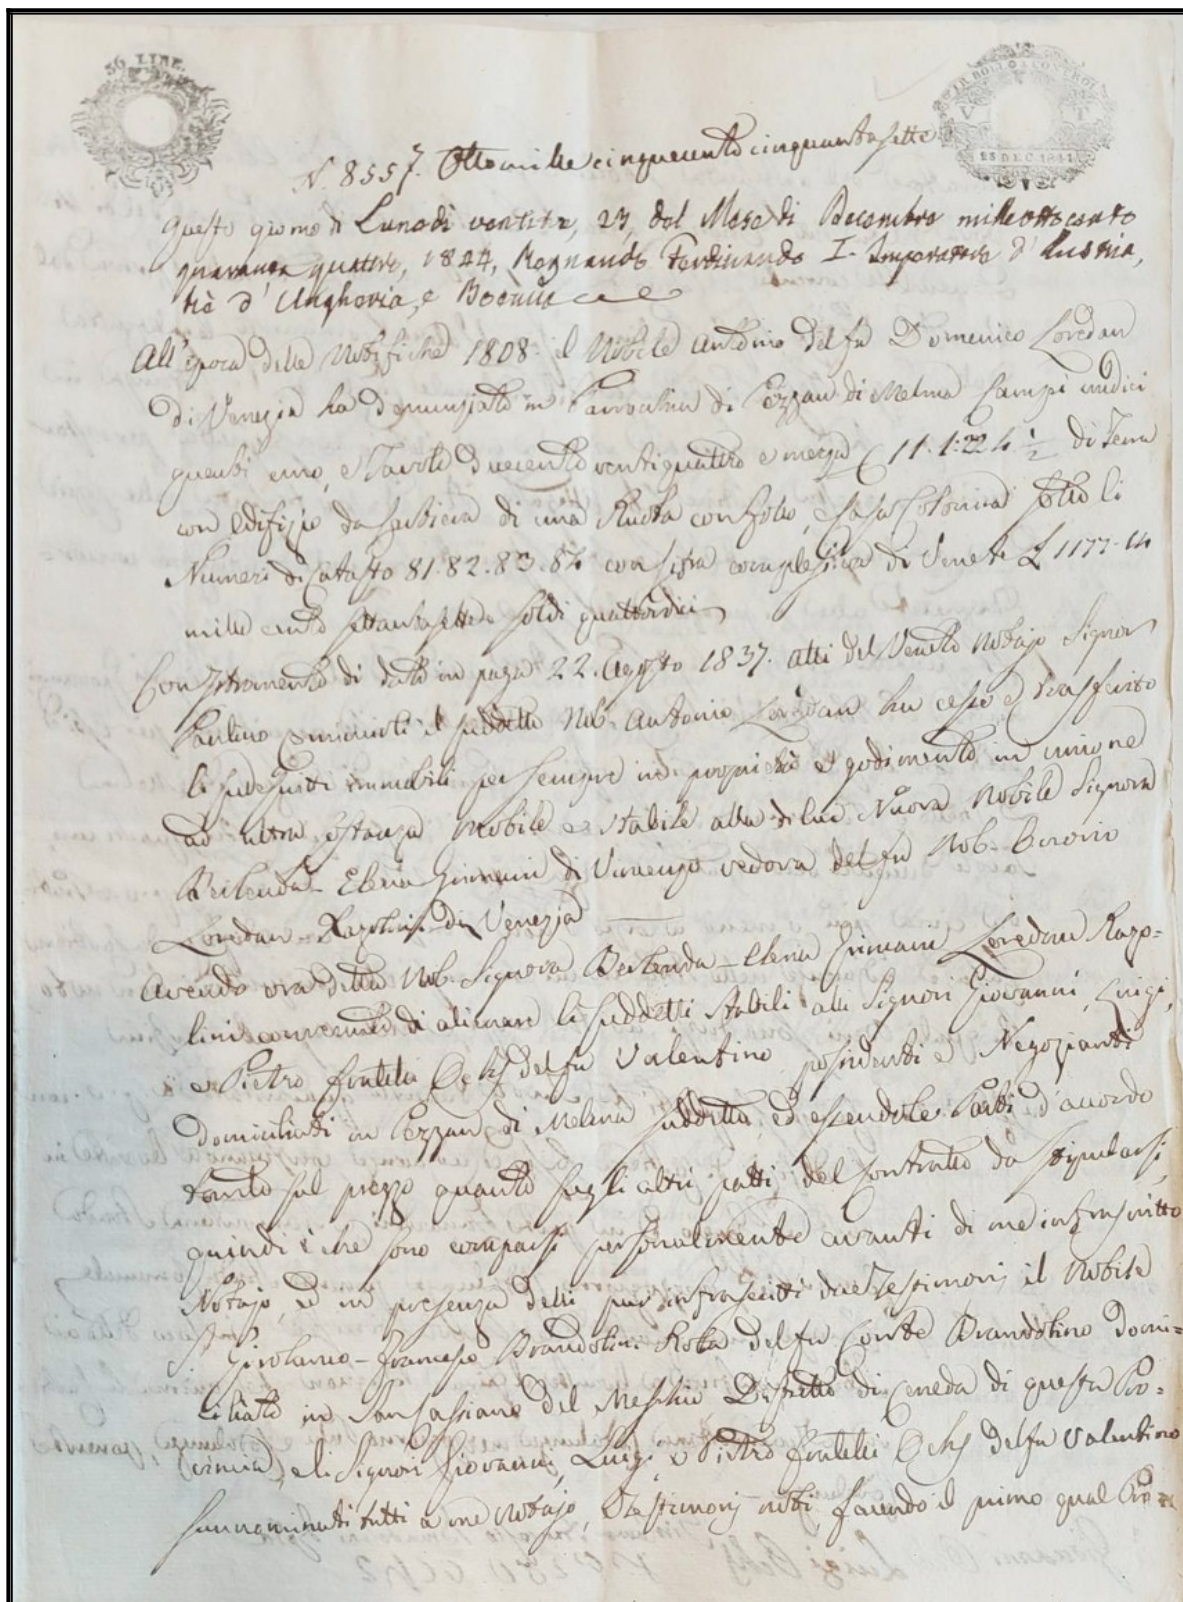 36 LIRE.
23 DEC. 1844
N. 8557. Ottomille cinquecento cinquantasette
Questo giorno di Lunedì ventitre, 23, del Mese di Decembre mille ottocento
quaranta quattro, 1844, Regnando Ferdinando I. Imperatore d'Austria,
Rè d'Ungheria, e Boemia
All'epoca delle Notifiche 1808. il Nobile Antonio del fu Domenico Loredan
di Venezia ha denunziato in Parrochia di Pezzan di Melma Campi undici
quarti uno, e Tavole duecento ventiquattro e mezza C 11.1:224 1/2 di Terra
con Edifizio da di una Ruota con Follo, e Casa Colonica sotto li
Numeri di Catasto 81.82.83.84 con cifra complessiva di Venete £ 1177.14
mille cento settantasette soldi quattordici
Con Istromento di dato in paga 22. Agosto 1837. atti del Veneto Notajo Signor
il suddetto Nob. Antonio Loredan ha cesso e trasferito
li sudescritti immobili per sempre in proprietà e godimento in unione
ad altra sostanza Mobile e stabile alla di lui Nuora Nobile Signora
Berlenda-Elena Grimani di vedova del fu Nob.
Loredan-Razolini di Venezia
Avendo ora detta Nob. Signora Berlenda-Elena Grimani Loredan Razo=
lini convenuto di alienare li suddetti Stabili alli Signori Giovanni, Luigi,
e Pietro fratelli del fu Valentino possidenti e Negozianti
domiciliati in Pezzan di Melma suddetto, ed essendo le Parti d'accordo
tanto sul prezzo quanto sugli altri patti del Contratto da stipularsi,
quindi è che sono comparsi personalmente avanti di me infrascritto
Notajo, ed in presenza delli pur infrascritti due Testimonj il Nobile
Sr. Girolamo-Francesco Brandolini Rota del fu Conte Brandolino domi=
ciliato in San Cassiano del Meschio Distretto di Ceneda di questa Pro=
vincia, e li Signori Giovanni, Luigi, e Pietro fratelli del fu Valentino
sunnominati tutti a me Notajo, e Testimonj noti, facendo il primo qual Pro=